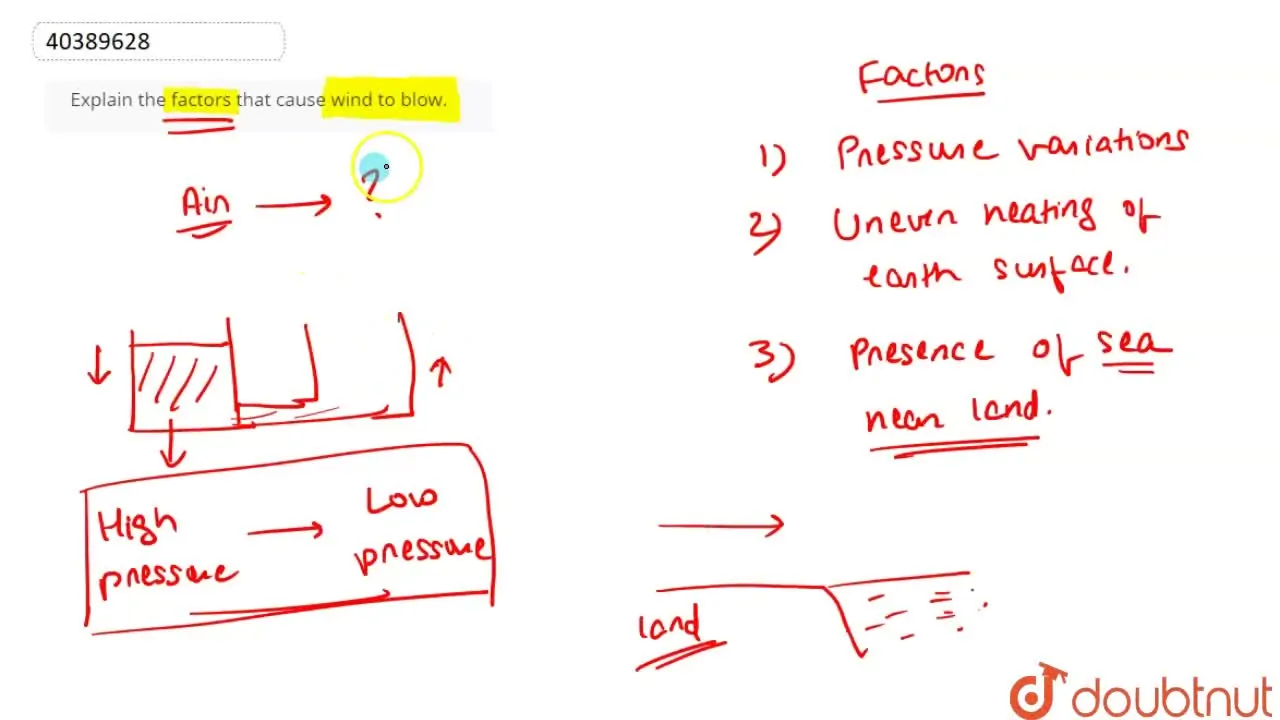 40389628
Explain the factors that cause wind to blow.
Air → ?
High → Low
pressure pressure
Factors
1) Pressure variations
2) Uneven heating of
earth surface.
3) Presence of sea
near land.
land
doubtnut